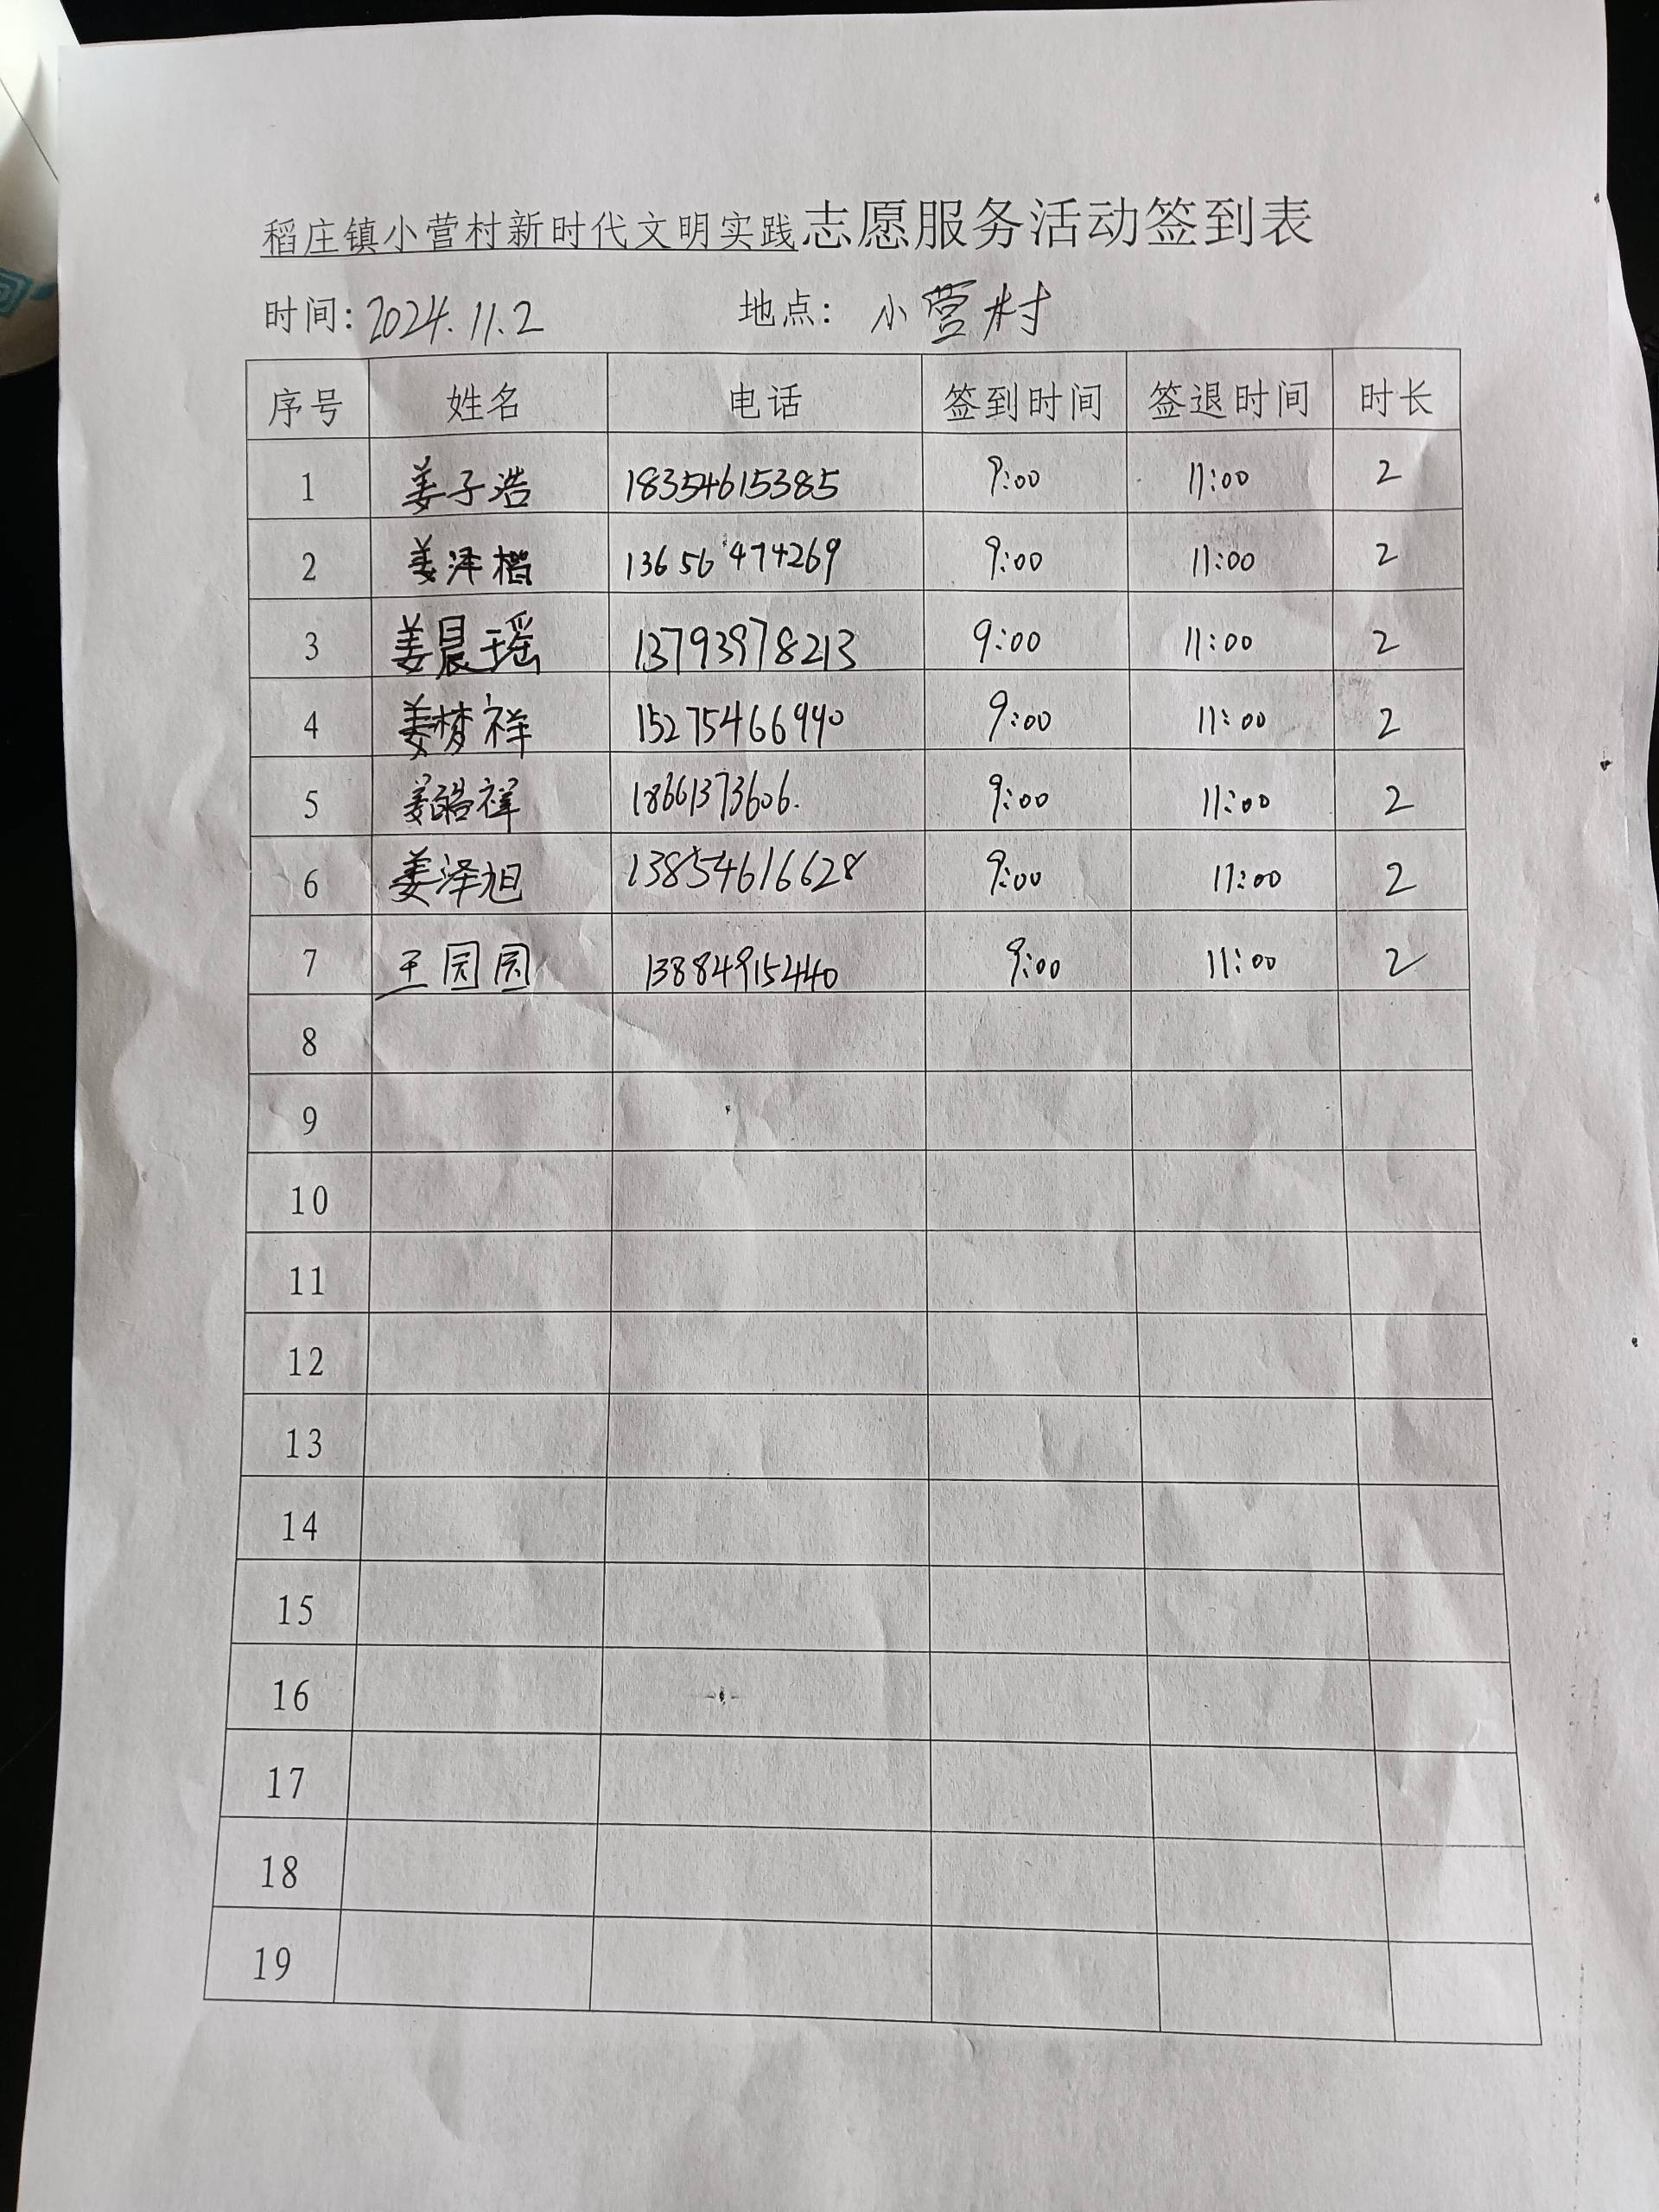 稻庄镇小营村新时代文明实践志愿服务活动签到表
时间:2024.11.2 地点:小营村
序号 姓名 电话 签到时间 签退时间 时长
1 姜子浩 18354615385 9:00 11:00 2
2 姜泽楷 13656474269 9:00 11:00 2
3 姜晨瑶 13793978213 9:00 11:00 2
4 姜梦祥 15275466940 9:00 11:00 2
5 姜皓祥 18661373606. 9:00 11:00 2
6 姜泽旭 13854616628 9:00 11:00 2
7 王园园 13884915440 9:00 11:00 2
8
9
10
11
12
13
14
15
16
17
18
19